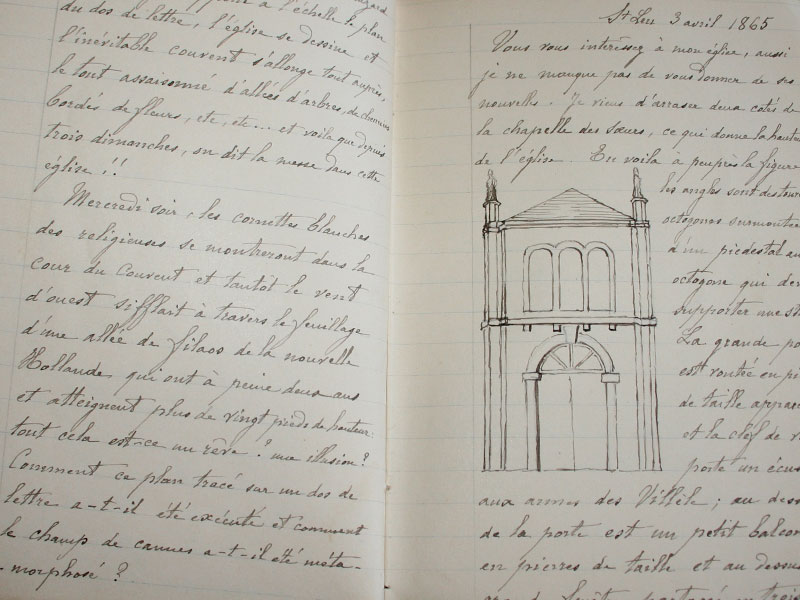 à l'échelle le plan
du dos de lettre, l'église se dessine et
l'inévitable couvent s'allonge tout auprès,
le tout assaisonné d'allées d'arbres, de chemins
bordés de fleurs, etc, etc... et voilà que depuis
trois dimanches, on dit la messe dans cette
église !!
Mercredi soir, les cornettes blanches
des religieuses se montreront dans la
cour du couvent et tantôt le vent
d'ouest sifflait à travers le feuillage
d'une allée de filaos de la nouvelle
Hollande qui ont à peine deux ans
et atteignent plus de vingt pieds de hauteur.
tout cela est-ce un rêve ? une illusion ?
Comment ce plan tracé sur un dos de
lettre a-t-il été exécuté et comment
le champ de cannes a-t-il été méta-
-morphosé ?
St Leu 3 avril 1865
Vous vous intéressez à mon église, aussi
je ne manque pas de vous donner de ses
nouvelles. Je viens d'arraser deux cotés de
la chapelle des Sœurs, ce qui donne la haute
de l'église. En voilà à peu près la figure
les angles sont des tour
octogones surmonté
d'un piedestal au
octogone qui de
supporter une st
La grande po
est voutée en pi
de taille appar
et la clef de v
porte un écus
aux armes des Villèle ; au dess
de la porte est un petit balcon
en pierres de taille et au dessu